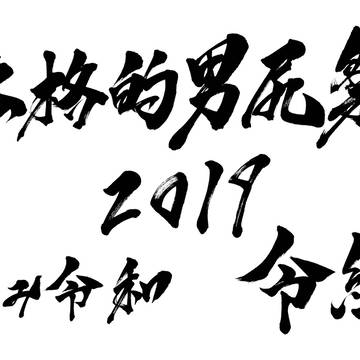 格的男尻
2019
み令和 令